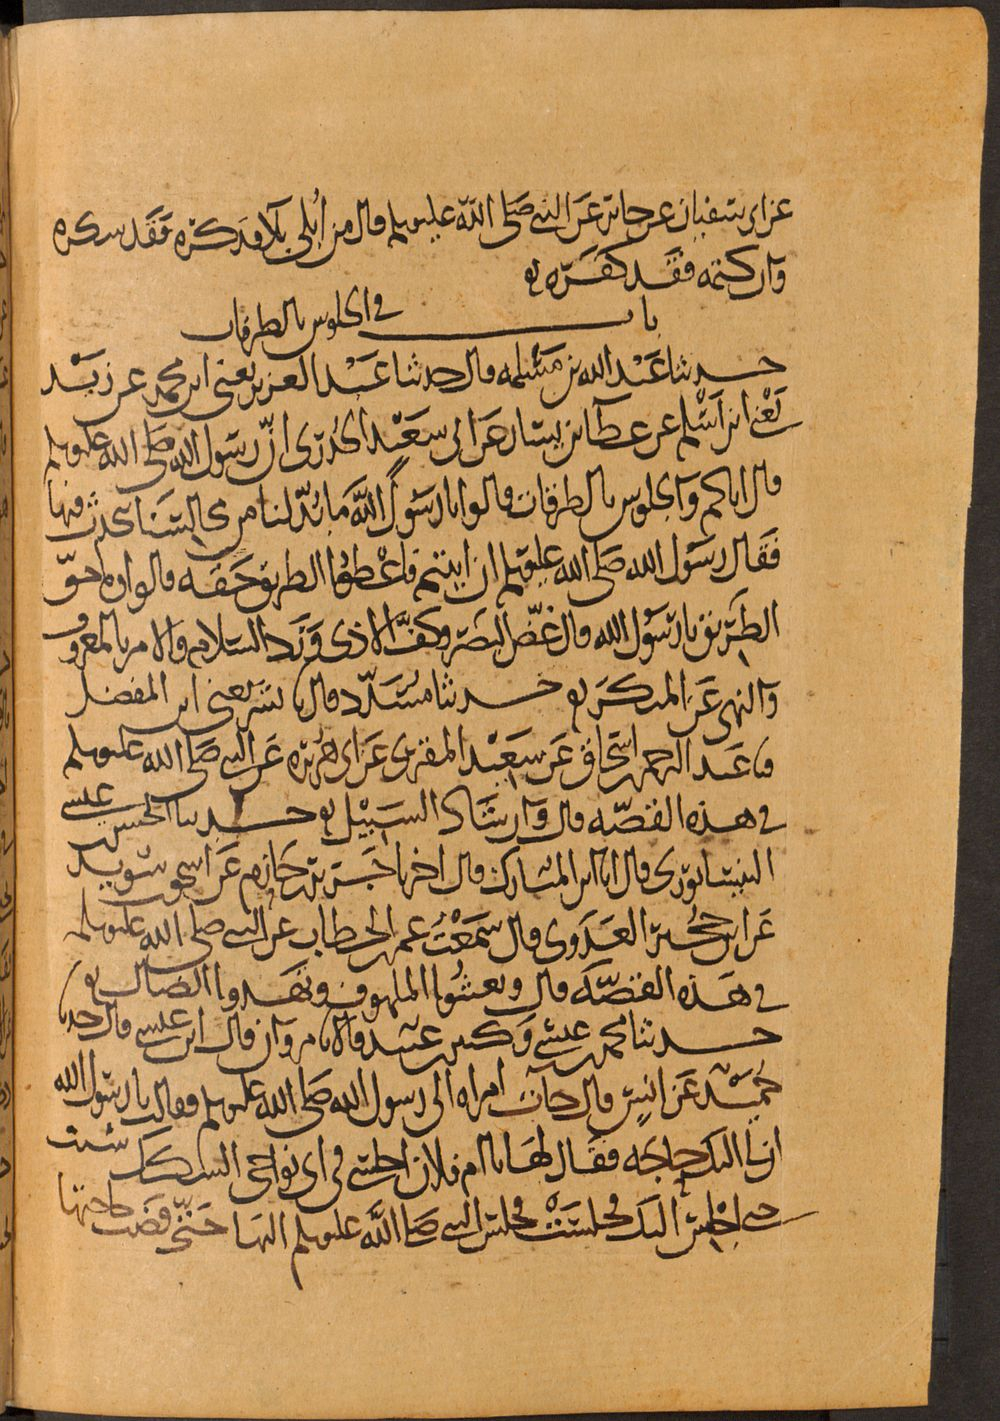 عن ابى سفيان عن جابر عن النبي صلى الله عليه وسلم قال من أبلى بلاء فذكره فقد شكره
وان كتمه فقد كفره
باب في الجلوس بالطرقات
حدثنا عبد الله بن مسلمه قال حدثنا عبد العزيز يعنى ابن محمد عن زيد
يعني ابن اسلم عن عطا بن يسار عن ابى سعيد الخدرى ان رسول الله صلى الله عليه وسلم
قال اياكم والجلوس بالطرقات قالوا يا رسول الله ما بد لنا من مجالسنا نتحدث فيها
فقال رسول الله صلى الله عليه وسلم ان ابيتم فاعطوا الطريق حقه قالوا وما حق
الطريق يا رسول الله قال غض البصر وكف الاذى ورد السلام والامر بالمعروف
والنهى عن المنكر حدثنا مسدد قال نا بشر يعنى ابن المفضل
نا عبد الرحمن بن اسحاق عن سعيد المقبرى عن ابى هريره عن النبي صلى الله عليه وسلم
في هذه القصه قال وارشاد السبيل حدثنا الحسن بن عيسى
النيسابورى قال انا ابن المبارك قال اخبرنا جرير بن حازم عن اسحق بن سويد
عن ابن حجير العدوى قال سمعت عمر بن الخطاب عن النبي صلى الله عليه وسلم
في هذه القصه قال وتغيثوا الملهوف وتهدوا الضال
حدثنا محمد بن عيسى وكثير بن عبيد قالا نا مروان قال ابن عيسى قال حدثنا
حميد عن انس قال جات امراه الى رسول الله صلى الله عليه وسلم فقالت يا رسول الله
ان لى اليك حاجه فقال لها يا ام فلان اجلسي في اى نواحى السكك شئت
حتى اجلس اليك فجلست فجلس النبي صلى الله عليه وسلم اليها حتى قضت حاجتها